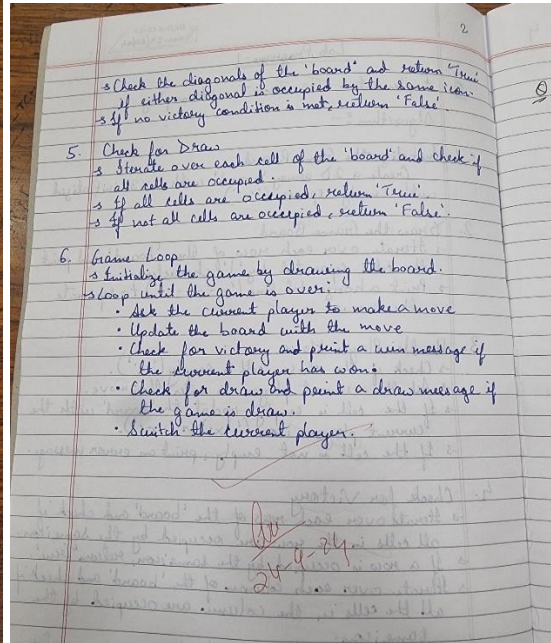 2
→ Check the diagonals of the 'board' and return 'True'
if either diagonal is occupied by the same icon.
→ If no victory condition is met, return 'False'
5. Check for Draw
→ Iterate over each cell of the 'board' and check if
all cells are occupied.
→ If all cells are occupied, return 'True'.
→ If not all cells are occupied, return 'False'.
6. Game Loop
→ Initialize the game by drawing the board.
→ Loop until the game is over:
• Ask the current player to make a move
• Update the board with the move
• Check for victory and print a win message if
the current player has won.
• Check for draw and print a draw message if
the game is draw.
• Switch the current player.
24-4-24